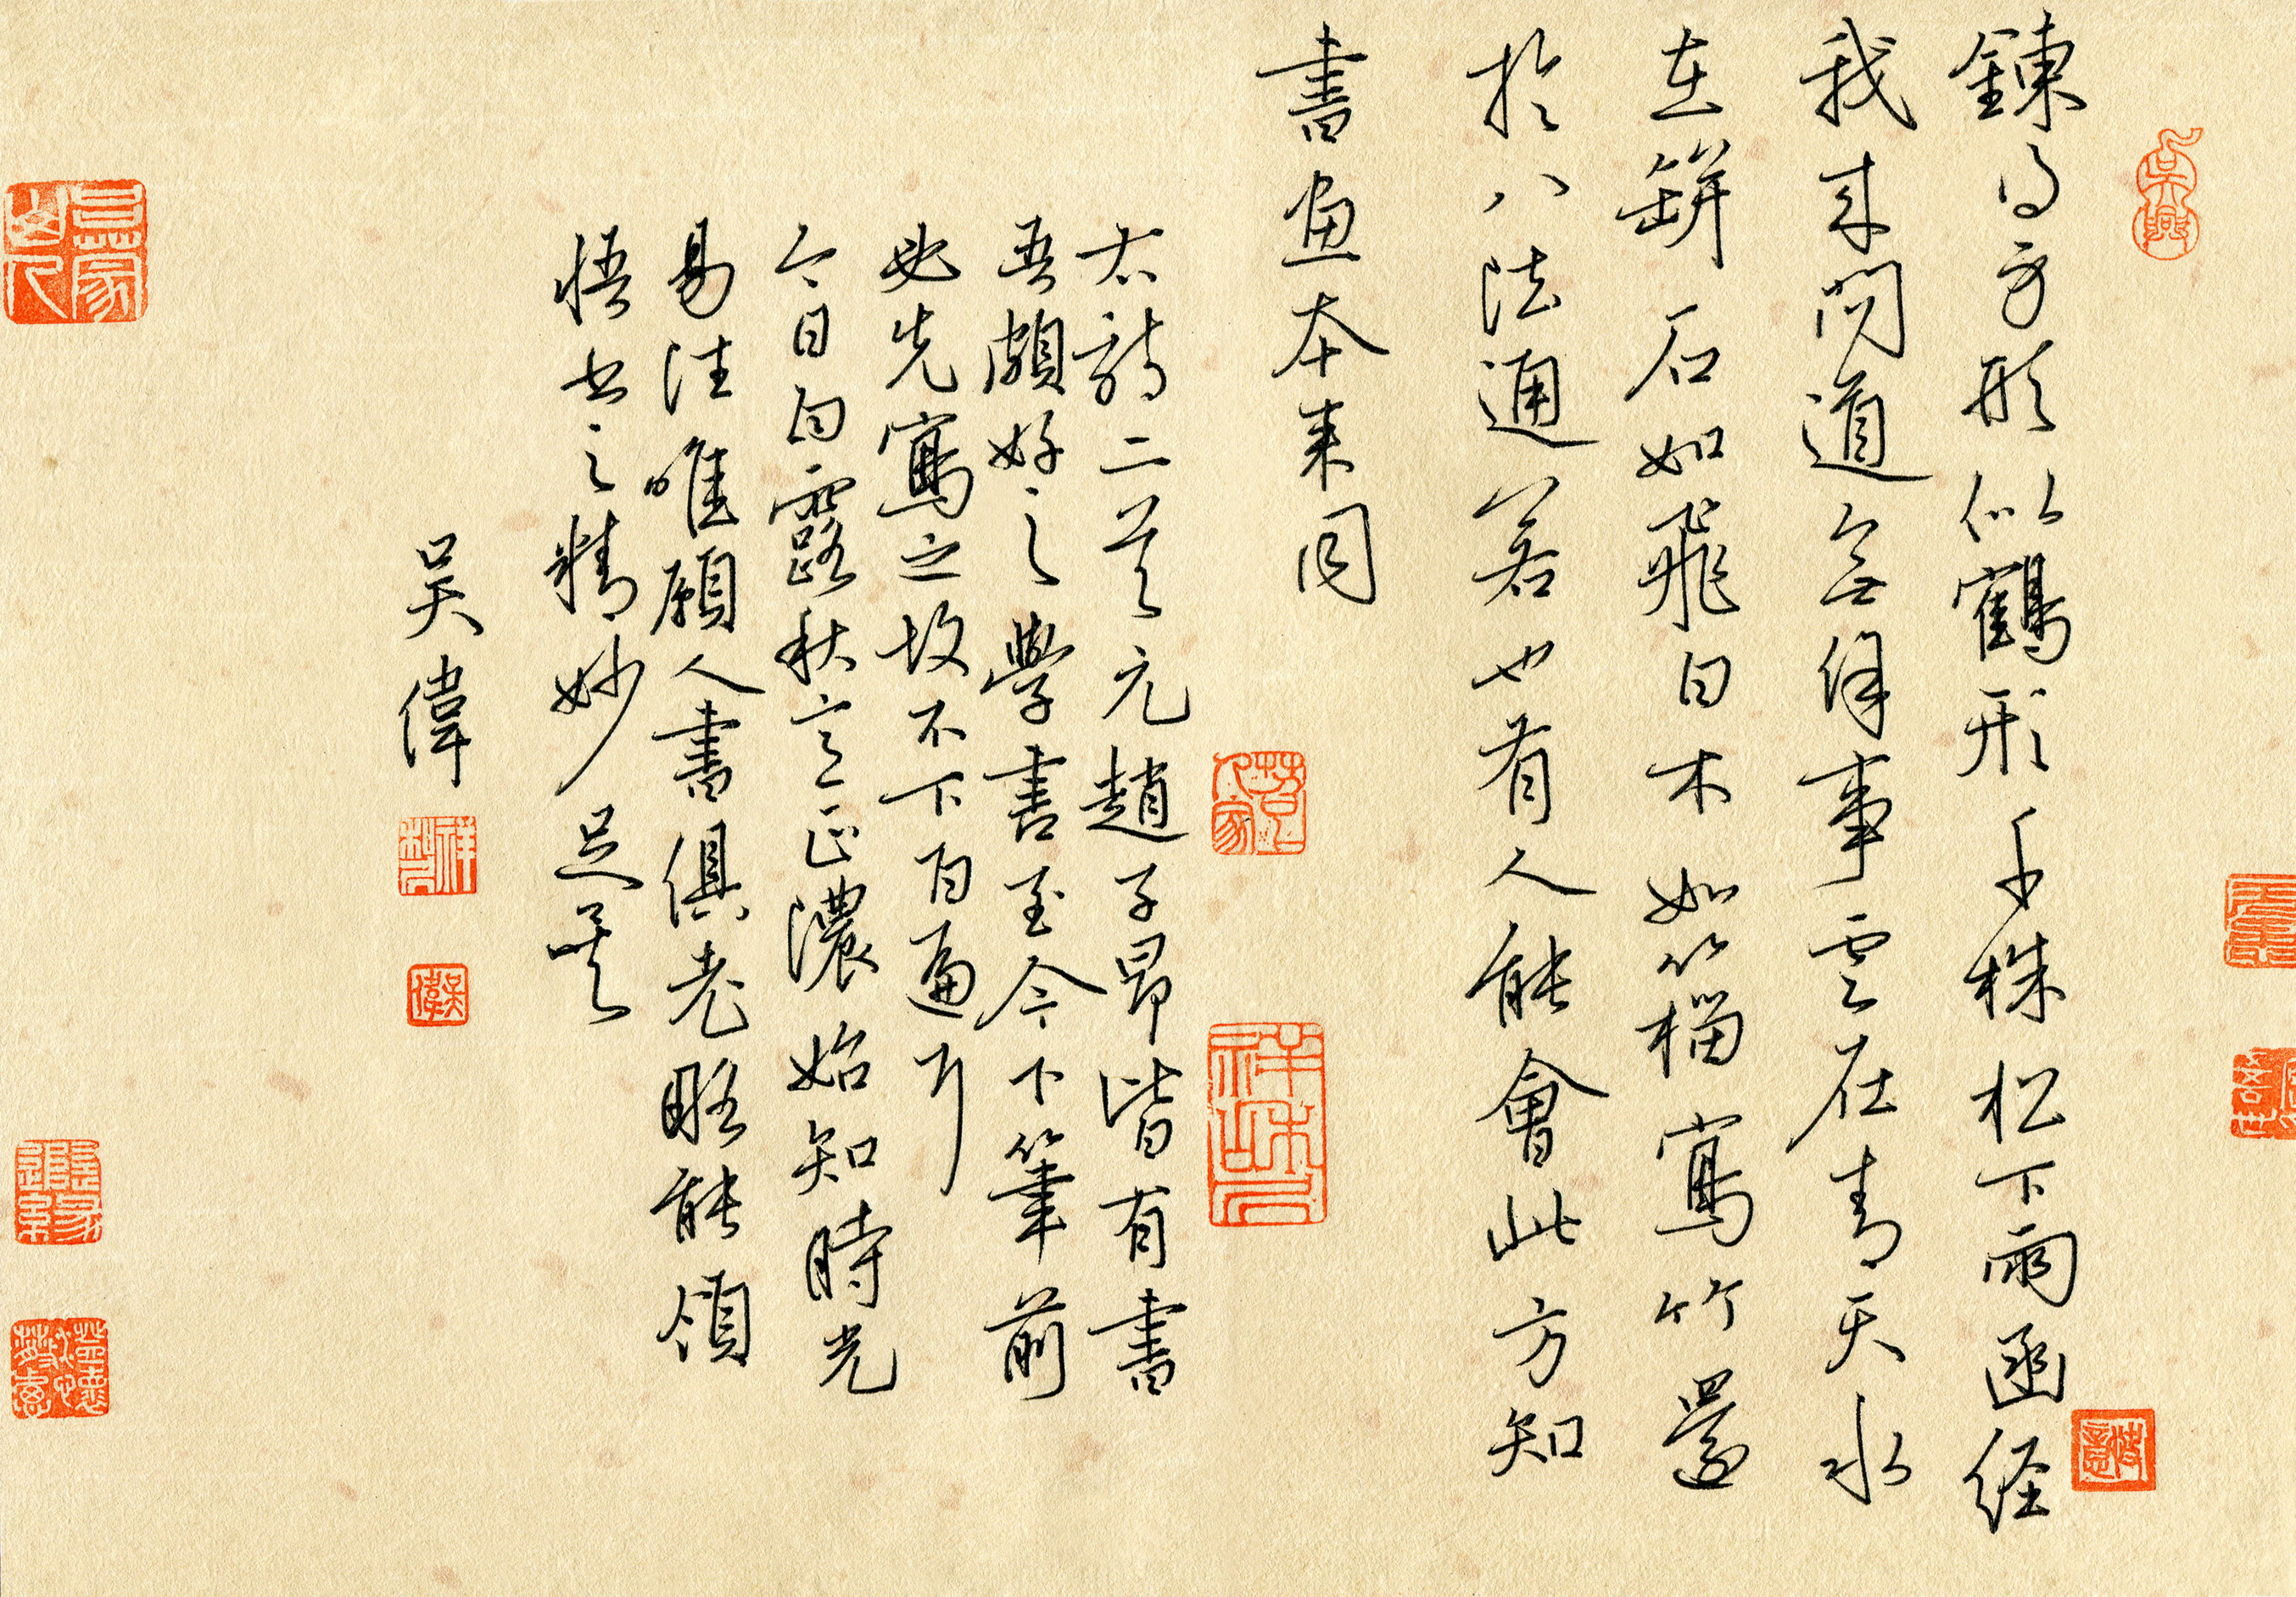 鍊得身形似鶴形千株松下兩函経
我来問道無餘事雲在青天水
在缾石如飛白木如籀寫竹還
於八法通若也有人能會此方知
書畫本来同
右詩二首元趙子昂皆有書
吾頗好之學書至今下筆前
必先寫之故不下百遍耳
今日白露秋意正濃始知時光
易往唯願人書俱老略能領
悟書之精妙足矣
吳偉